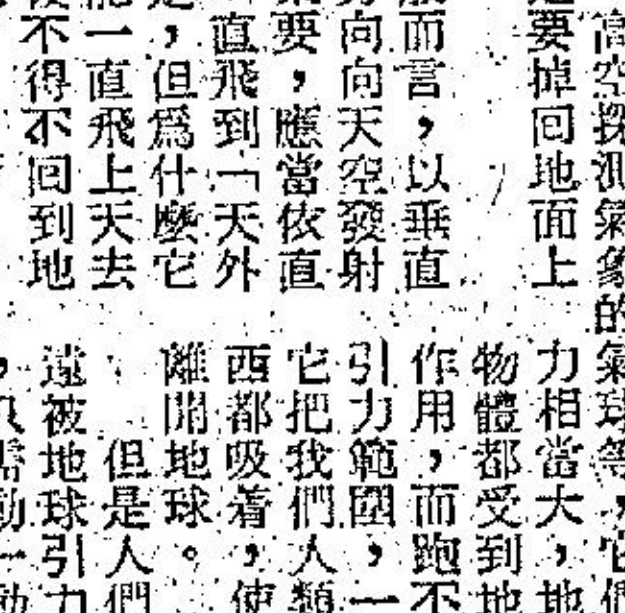 高空探測氣象的氣球等，它們
要掉回地面上
而言，以垂直
向向天空發射
要，應當依直
直飛到「天外
，但爲什麼它
一直飛上天去
不得不回到地
力相當大，地
物體都受到地
作用，而跑不
引力範圍，一
它把我們人類
西都吸着，使
離開地球。
但是人們
遠被地球引力